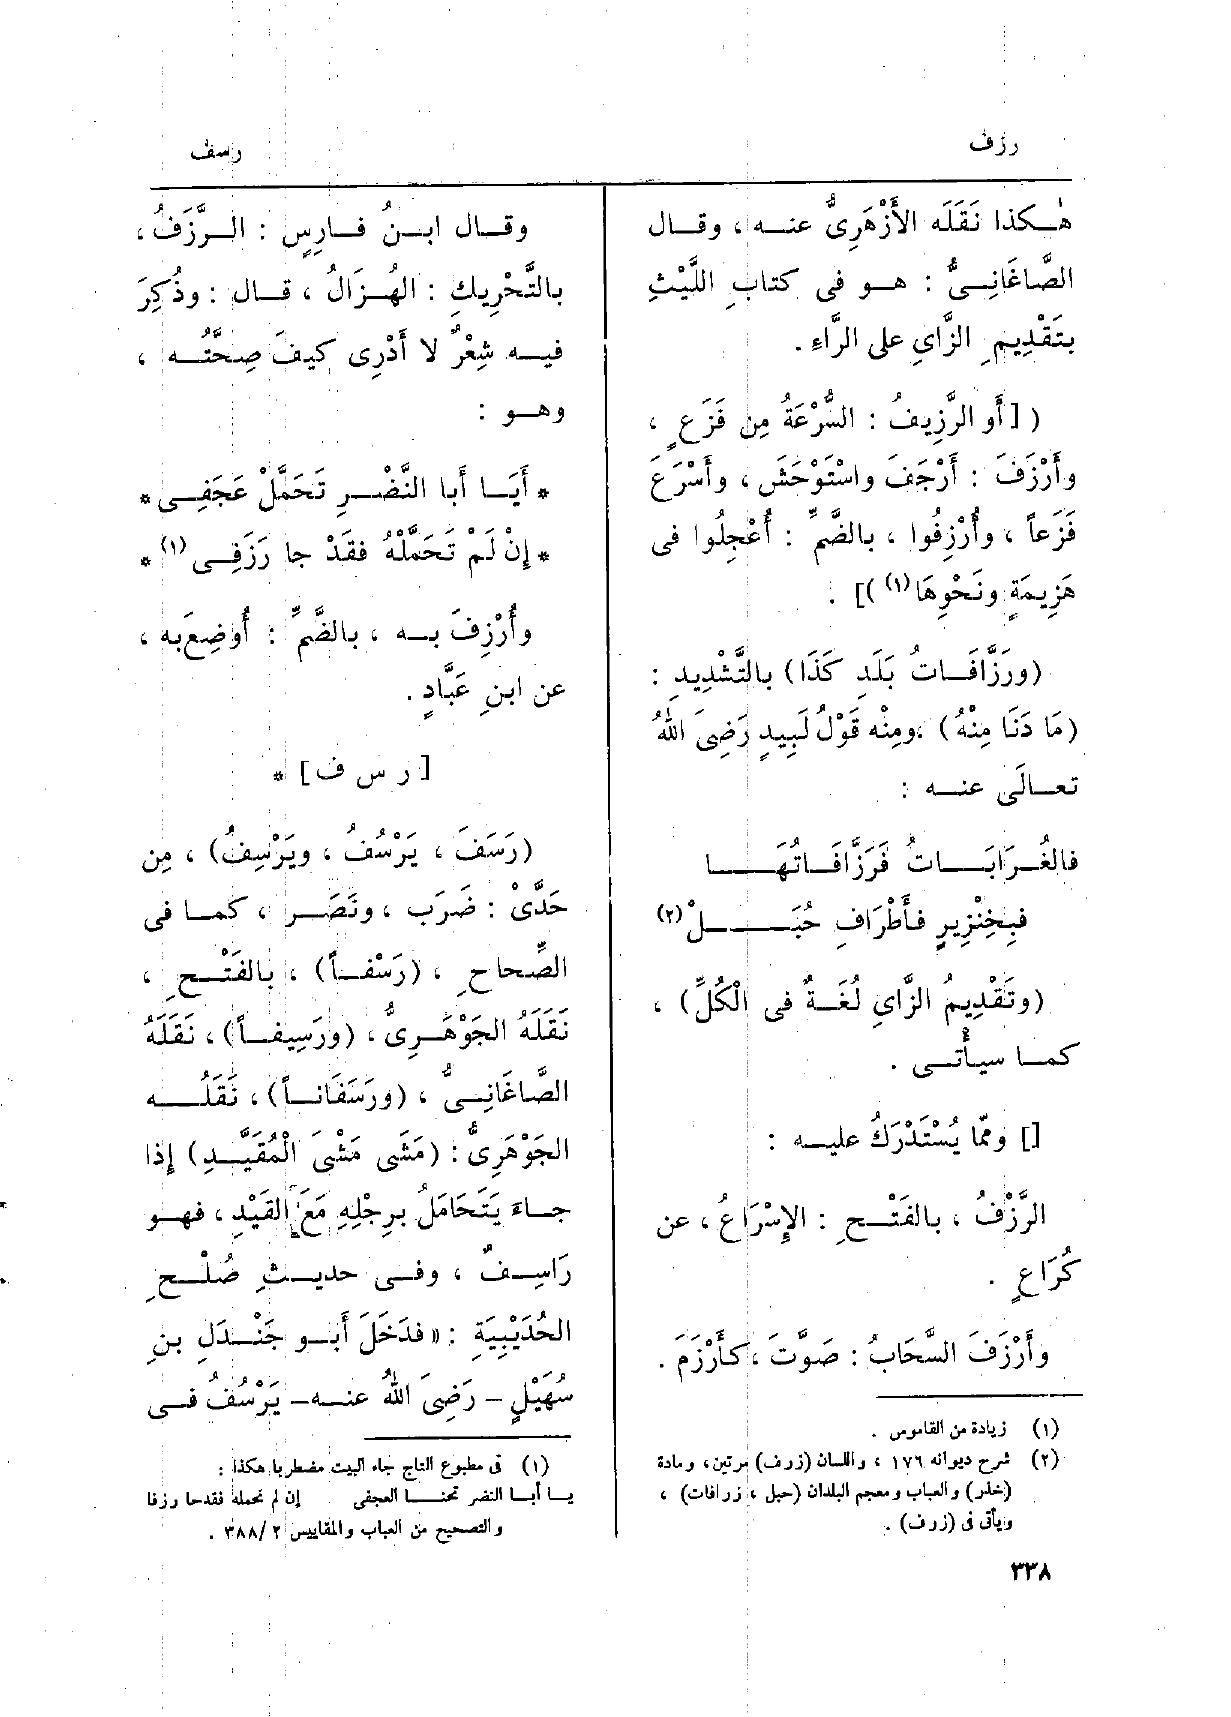 رزف
رسف
هٰكذا نَقَلَه الأَزْهَرِىُّ عنه ، وقال
الصَّاغَانِىُّ : هو فى كتابِ اللَّيْثِ
بتَقْدِيمِ الزَّايِ على الرَّاءِ .
( [أَو الرَّزِيفُ : السُّرْعَةُ مِن فَزَعٍ ،
وأَرْزَفَ : أَرْجَفَ واسْتَوْحَشَ ، وأَسْرَعَ
فَزَعاً ، وأُرْزِفُوا ، بالضَّمِّ : أُعْجِلُوا فى
هَزِيمَةٍ ونَحْوِهَا(١) )] .
(ورَزَّافَاتُ بَلَدِ كَذَا) بالتَّشْدِيدِ :
(مَا دَنَا مِنْهُ) ،ومِنْه قَوْلُ لَبِيدٍ رَضِىَ اللهُ
تعالَى عنه :
فالغُرَابَاتُ فَرَزَّافَاتُهَا
فبِخِنْزِيرٍ فأَطْرَافِ حُبَلْ(٢)
(وتَقْدِيمُ الزَّايِ لُغَةٌ فى الْكُلِّ) ،
كما سيأْتى .
[] وممّا يُسْتَدْرَكُ عليه :
الرَّزْفُ ، بالفَتْحِ : الإِسْرَاعُ ، عن
كُرَاعٍ .
وأَرْزَفَ السَّحَابُ : صَوَّتَ ، كأَرْزَمَ .
(١) زيادة من القاموس .
(٢) شرح ديوانه ١٧٦ ، واللسان (زرف) مرتين ، ومادة
(خنزر) والعباب ومعجم البلدان (حبل ، زرافات) ،
ويأتى فى (زرف) .
وقال ابنُ فارِسٍ : الرَّزَفُ ،
بالتَّحْرِيكِ : الهُزَالُ ، قال : وذُكِرَ
فيه شِعْرٌ لا أَدْرِى كيفَ صِحَّتُه ،
وهو :
* أَيَا أَبا النَّضْرِ تَحَمَّلْ عَجَفِى *
* إِنْ لَمْ تَحَمَّلْهُ فقَدْ جا رَزَفِى(١) *
وأُرْزِفَ به ، بالضَّمِّ : أُوضِعَ به ،
عن ابنِ عَبَّادٍ .
[ ر س ف ] *
(رَسَفَ ، يَرْسُفُ ، ويَرْسِفُ) ، مِن
حَدَّىْ : ضَرَب ، ونَصَر ، كما فى
الصِّحاحِ ، (رَسْفاً) ، بالفَتْحِ ،
نَقَلَهُ الجَوْهَرِىُّ ، (ورَسِيفاً) ، نَقَلَهُ
الصَّاغَانِىُّ ، (ورَسَفَاناً) ، نَقَلُه
الجَوْهَرِىُّ : (مَشَى مَشْىَ الْمُقَيَّدِ) إِذا
جاءَ يَتَحَامَلُ برِجْلِهِ مَعَ القَيْدِ ، فهو
رَاسِفٌ ، وفى حديثِ صُلْحِ
الحُدَيْبِيَةِ : « فدَخَلَ أَبو جَنْدَلِ بنِ
سُهَيْلٍ – رَضِىَ اللهُ عنه – يَرْسُفُ فى
(١) فى مطبوع التاج جاء البيت مضطربا هكذا :
يا أبا النضر تحنا العجفى إن لم تحمله فقدحا رزفا
والتصحيح من العباب والمقاييس ٢ /٣٨٨ .
٣٣٨